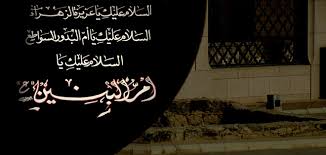 السلام عليك يا عزيزة الزهراء
السلام عليك يا أم البدور السواطع
السلام عليك يا
أم البنين